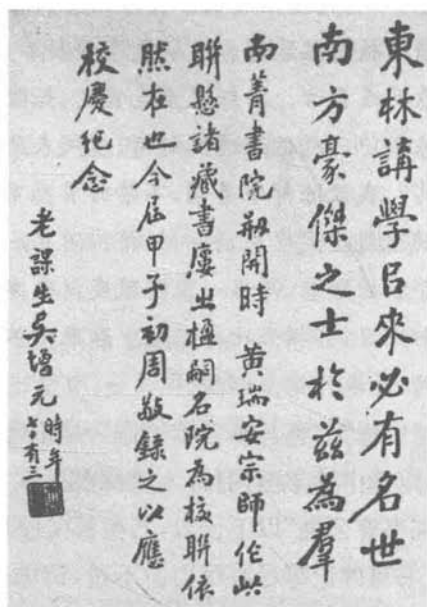 東林講學㠯來必有名世
南方豪傑之士於兹為羣
南菁書院剏開時　黃瑞安宗師作此
聯懸諸藏書廔之楹嗣名院為校聯依
然在也今屆甲子初周敬錄之以應
校慶纪念
老課生吳增元時年
七十有三